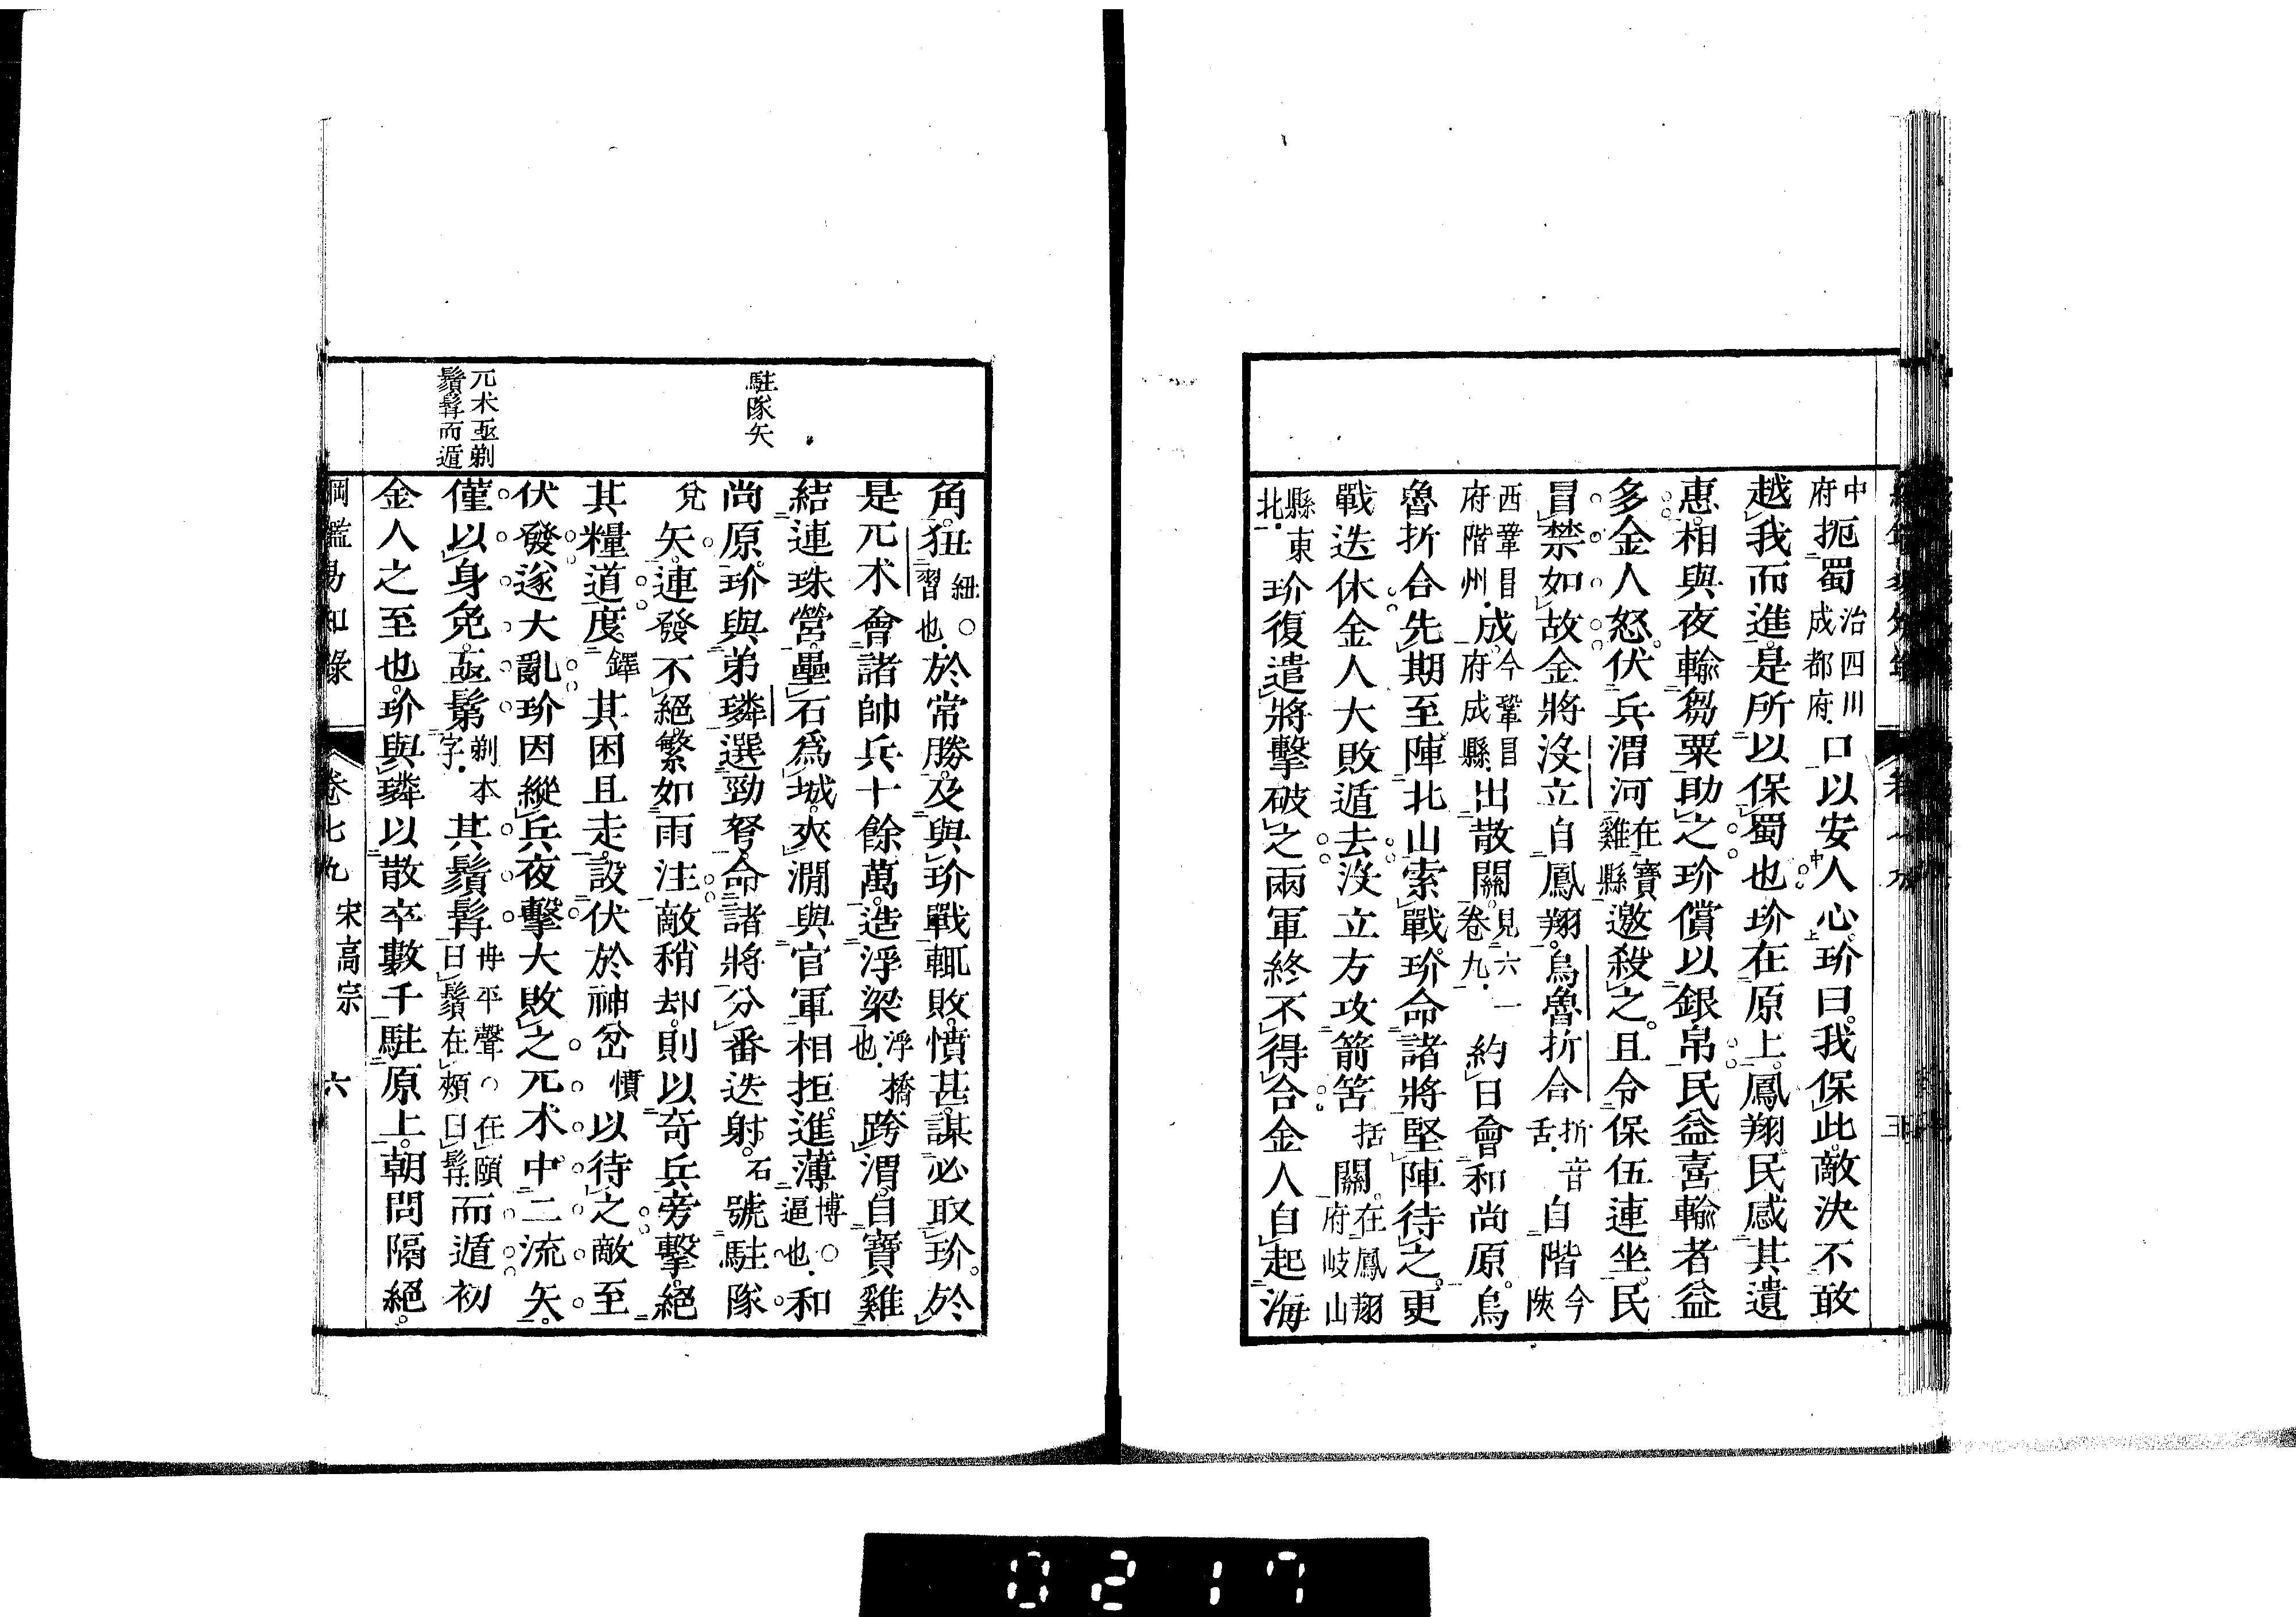 中府扼蜀治四川成都府口以安人心玠曰我保此敵決不敢
越我而進是所以保蜀也玠在原上鳳翔民感其遺
惠相與夜輸芻粟助之玠償以銀帛民益喜輸者益
多金人怒伏兵渭河在寶雞縣邀殺之且令保伍連坐民
冒禁如故金將沒立自鳳翔烏魯折合折音舌自階今陝
西鞏昌府階州成今鞏昌府成縣出散關見六一卷九約日會和尚原烏
魯折合先期至陣北山索戰玠命諸將堅陣待之更
戰迭休金人大敗遁去沒立方攻箭筈括關在鳳翔府岐山
縣東北玠復遣將擊破之兩軍終不得合金人自起海
角狃紐○習也於常勝及與玠戰輒敗憤甚謀必取玠於
是兀朮會諸帥兵十餘萬造浮梁浮橋也跨渭自寶雞
結連珠營壘石為城夾澗與官軍相拒進薄博○逼也和
尚原玠與弟璘選勁弩命諸將分番迭射石號駐隊
矢連發不絕繁如雨注敵稍却則以奇兵旁擊絕
其糧道度鐸其困且走設伏於神岔以待之敵至
伏發遂大亂玠因縱兵夜擊大敗之兀朮中二流矢
僅以身免亟鬀剃本字其鬚髯冉平聲○在頤曰鬚在頰曰髯而遁初
金人之至也玠與璘以散卒數千駐原上朝問隔絕
駐隊矢
兀朮亟剃
鬚髯而遁
綱鑑易知錄 卷七九 宋高宗 六
0217